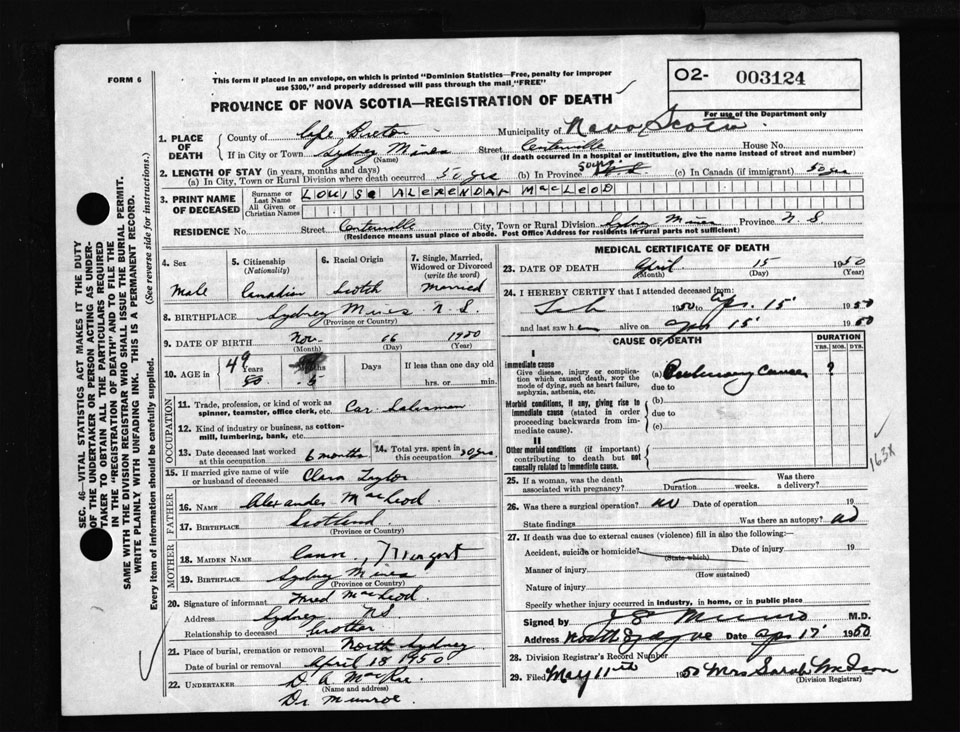 FORM 6
This form if placed in an envelope, on which is printed "Dominion Statistics—Free, penalty for improper
use $300," and properly addressed will pass through the mail "FREE"
O2- 003124
PROVINCE OF NOVA SCOTIA—REGISTRATION OF DEATH
For use of the Department only
1. PLACE OF DEATH
County of Cape Breton Municipality of Nova Scotia
If in City or Town Sydney Mines Street Centerville House No.
(Name) (If death occurred in a hospital or institution, give the name instead of street and number)
2. LENGTH OF STAY (in years, months and days)
(a) In City, Town or Rural Division where death occurred 50 yrs (b) In Province 50 yrs (c) In Canada (if immigrant) 50 yrs
3. PRINT NAME OF DECEASED
Surname or Last Name LOUISE ALEXENDAR MacLEOD
All Given or Christian Names
RESIDENCE No. Street Centerville City, Town or Rural Division Sydney Mines Province N. S
(Residence means usual place of abode. Post Office Address for residents in rural parts not sufficient)
4. Sex
Male
5. Citizenship (Nationality)
Canadian
6. Racial Origin
Scotch
7. Single, Married, Widowed or Divorced (write the word)
Married
8. BIRTHPLACE Sydney Mines N. S.
(Province or Country)
9. DATE OF BIRTH Nov. 16 1900
(Month) (Day) (Year)
10. AGE in 49 Years Months Days If less than one day old
hrs. or min.
OCCUPATION
11. Trade, profession or kind of work as
spinner, teamster, office clerk, etc. Car Salesman
12. Kind of industry or business, as cotton-
mill, lumbering, bank, etc.
13. Date deceased last worked at this occupation 6 months
14. Total yrs. spent in this occupation 30 yrs
15. If married give name of wife
or husband of deceased Clara Taylor
FATHER
16. NAME Alexander MacLeod
17. BIRTHPLACE Scotland
(Province or Country)
MOTHER
18. MAIDEN NAME Cann, Margart
19. BIRTHPLACE Sydney Mines
(Province or Country)
20. Signature of informant Fred MacLeod
Address Sydney NS.
Relationship to deceased brother
21. Place of burial, cremation or removal North Sydney
Date of burial or removal April 18 1950
22. UNDERTAKER D. A. MacRae
(Name and address)
Dr. Munroe
MEDICAL CERTIFICATE OF DEATH
23. DATE OF DEATH April 15 1950
(Month) (Day) (Year)
24. I HEREBY CERTIFY that I attended deceased from:
Feb 1950 to Apr. 15 1950
and last saw him alive on Apr 15 1950
CAUSE OF DEATH
DURATION
YRS. MOS. DYS.
I
Immediate cause
Give disease, injury or complica-
tion which caused death, NOT the
mode of dying, such as heart failure,
asphyxia, asthenia, etc.
(a) Pulmonary Cancer ?
due to
Morbid conditions, if any, giving rise to
immediate cause (stated in order
proceeding backwards from im-
mediate cause).
(b)
due to
(c)
II
Other morbid conditions (if important)
contributing to death but not
causally related to immediate cause.
163X
25. If a woman, was the death
associated with pregnancy? Duration weeks. Was there a delivery?
26. Was there a surgical operation? no Date of operation 19
State findings Was there an autopsy? no
27. If death was due to external causes (violence) fill in also the following:
Accident, suicide or homicide? Date of injury 19
(State which)
Manner of injury
(How sustained)
Nature of injury
Specify whether injury occurred in industry, in home, or in public place
Signed by J E Munro M.D.
Address North Sydney Date Apr 17 1950
28. Division Registrar's Record Number
29. Filed May 11th 1950 Mrs Sarah
(Division Registrar)
SEC. 46—VITAL STATISTICS ACT MAKES IT THE DUTY
OF THE UNDERTAKER OR PERSON ACTING AS UNDER-
TAKER TO OBTAIN ALL THE PARTICULARS REQUIRED
IN THE "REGISTRATION OF DEATH" AND TO FILE THE
SAME WITH THE DIVISION REGISTRAR WHO SHALL ISSUE THE BURIAL PERMIT.
WRITE PLAINLY WITH UNFADING INK. THIS IS A PERMANENT RECORD.
Every item of information should be carefully supplied. (See reverse side for instructions.)